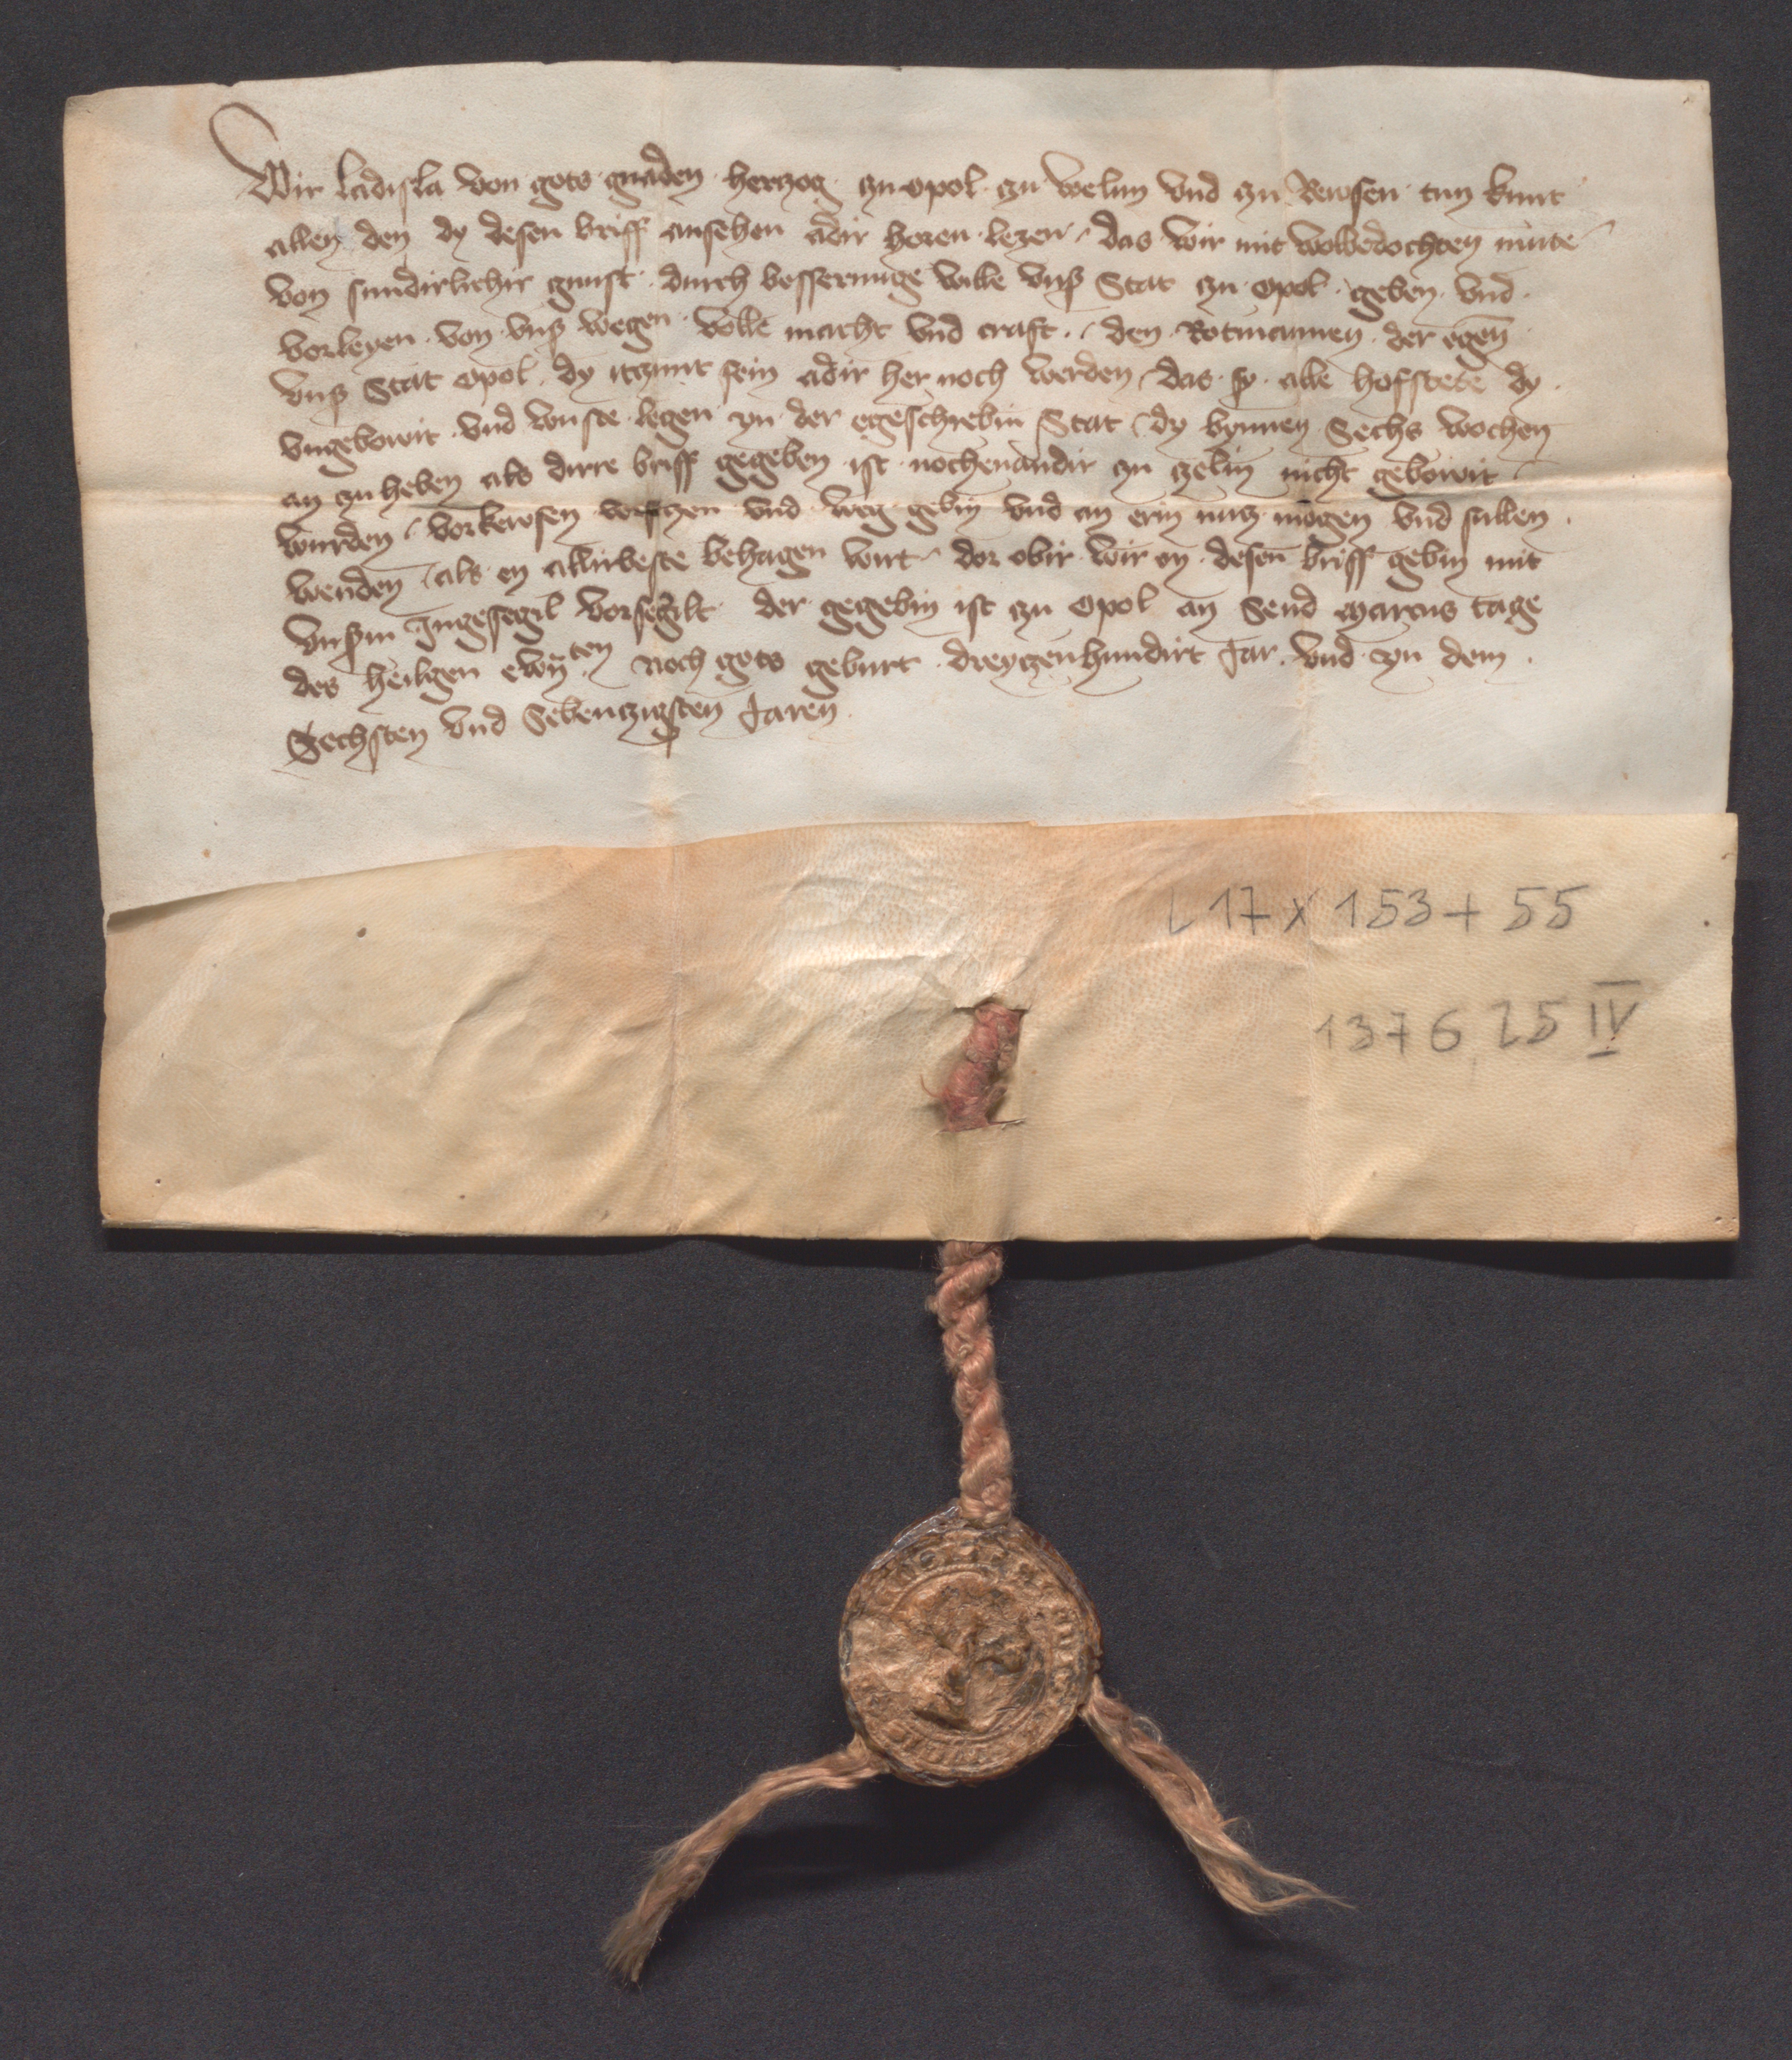 Wir Ladisla von gots gnaden herzog zu opol zu welun vnd zu Rewsen tun kunt
allen den dy desen briff ansehen adir horen lezen das wir mit wolbedochten mute
von sundirlichir gunst durch besserunge wille vnß Stat zu opol geben vnd
vorleyen von vnß wegen volle macht vnd craft den Rotmannen der egen
vnß Stat opol dy itzunt sein adir her noch werden das sy alle hofstete dy
vngebowit vnd wuste legen yn der egeschrebin Stat dy bynnen Sechs wochen
an zu heben als dirre briff gegeben ist nochenandir zu zelin nicht gebowit
wurden vorkewfen vorsetzen vnd weg gebin vnd an erin nutz mogen vnd sullen
wenden als en allirbeste behagen wirt dor obir wir en desen briff gebin mit
vnßm Ingesegil vorsegilt der gegebin ist zu opol an Send Marcus tage
des heiligen ewⁿten noch gots geburt dreyzenhundirt Jar vnd yn dem
Sechsten vnd Sebenzigsten Jaren
L 17 x 153 + 55
1376 25 IV